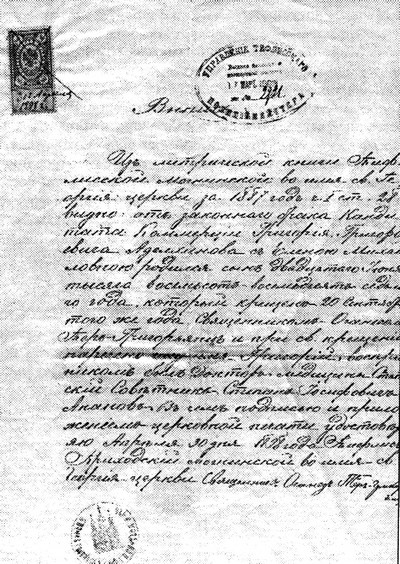 УПРАВЛЕНІЕ
ПОЛИЦІЙМЕЙСТЕРА
Изъ метрической книги Тиф
лисской Могнинской во имя св. Ге
оргія церкви за 1887 годъ ч. I ст. 28
видно: отъ законнаго брака Канди
тата Коммерціи Григорія Григорь
евича Аделханова съ Еленою Михай
ловною родился сынъ двадцатаго Іюня
тысяча восемьсотъ восемьдесятъ седьма
го года, который крещенъ 20 Сентября
того же года Священникомъ
Теръ-Григорьянцъ и при св. крещеніи
нареченъ Григорій, воспрі
никомъ былъ Докторъ Медицины Стат
скій Совѣтникъ Степанъ Іосифовичъ
Въ чемъ подписью и прило
женіемъ церковной печати удостовѣ
ряю Апрѣля 30 дня Тифлисъ
Приходской Могнинской во имя св.
Георгія церкви Священникъ